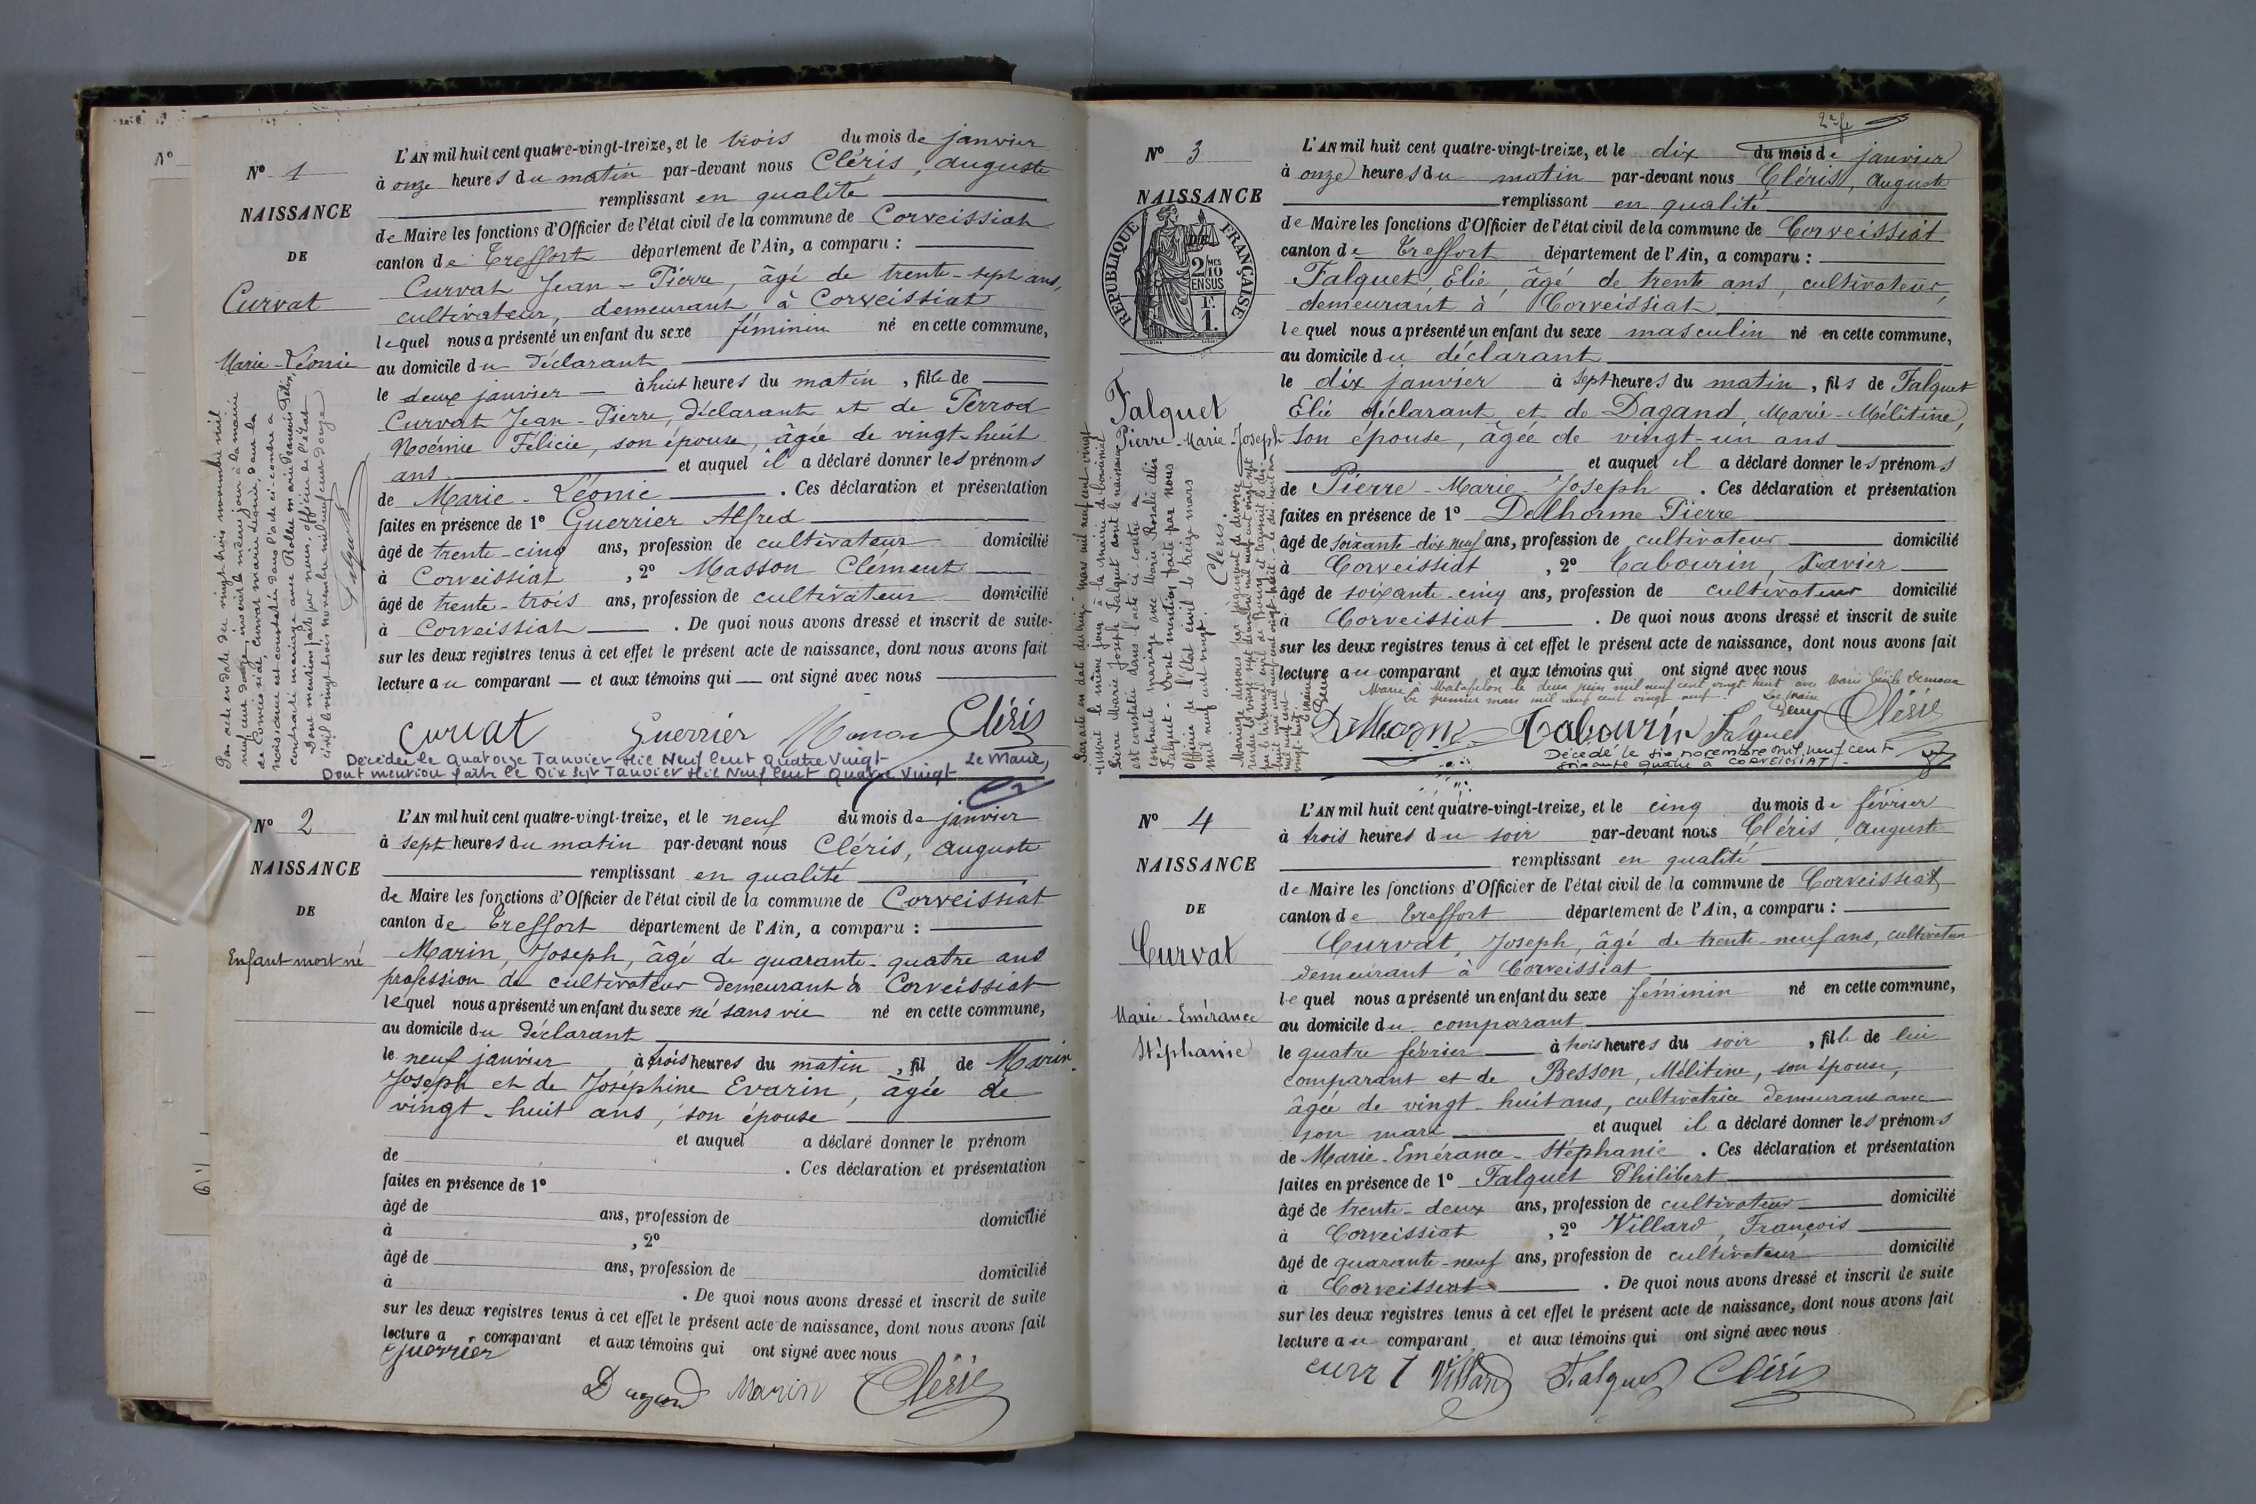 N° 1
NAISSANCE
DE
Curvat
Marie-Léonie
L'AN mil huit cent quatre-vingt-treize, et le trois du mois de janvier
à onze heures du matin par-devant nous Cléris, Auguste
remplissant en qualité
de Maire les fonctions d'Officier de l'état civil de la commune de Corveissiat
canton de Treffort département de l'Ain, a comparu :
Curvat Jean-Pierre, âgé de trente-sept ans,
cultivateur, demeurant à Corveissiat
lequel nous a présenté un enfant du sexe féminin né en cette commune,
au domicile du déclarant
le deux janvier à huit heures du matin, fille de
Curvat Jean-Pierre, déclarant et de Perrod
Noémie Félicie, son épouse, âgée de vingt-huit
ans et auquel il a déclaré donner les prénoms
de Marie-Léonie. Ces déclaration et présentation
faites en présence de 1° Guerrier Alfred
âgé de trente-cinq ans, profession de cultivateur domicilié
à Corveissiat, 2° Masson Clément
âgé de trente-trois ans, profession de cultivateur domicilié
à Corveissiat. De quoi nous avons dressé et inscrit de suite
sur les deux registres tenus à cet effet le présent acte de naissance, dont nous avons fait
lecture au comparant et aux témoins qui ont signé avec nous
curvat Guerrier Masson Cléris
Décédée le Quatorze Janvier Mil Neuf Cent Quatre Vingt
Dont mention faite le Dix Sept Janvier Mil Neuf Cent Quatre Vingt Le Maire,
Par acte en date du vingt trois novembre mil
neuf cent douze, inscrit le même jour à la mairie
de Corveissiat, Curvat Marie Léonie, dont la
naissance est constatée dans l'acte ci-contre a
contracté mariage avec Rollet Marie François Félix,
Dont mention faite par nous, officier de l'état
civil le vingt trois novembre mil neuf cent douze
N° 2
NAISSANCE
DE
Enfant mort né
L'AN mil huit cent quatre-vingt-treize, et le neuf du mois de janvier
à sept heures du matin par-devant nous Cléris, Auguste
remplissant en qualité
de Maire les fonctions d'Officier de l'état civil de la commune de Corveissiat
canton de Treffort département de l'Ain, a comparu :
Marin, Joseph, âgé de quarante-quatre ans
profession de cultivateur demeurant à Corveissiat
lequel nous a présenté un enfant du sexe né sans vie né en cette commune,
au domicile du déclarant
le neuf janvier à trois heures du matin, fil de Marin
Joseph et de Joséphine Evarin, âgée de
vingt-huit ans, son épouse
et auquel a déclaré donner le prénom
de . Ces déclaration et présentation
faites en présence de 1°
âgé de ans, profession de domicilié
à , 2°
âgé de ans, profession de domicilié
à . De quoi nous avons dressé et inscrit de suite
sur les deux registres tenus à cet effet le présent acte de naissance, dont nous avons fait
lecture a comparant et aux témoins qui ont signé avec nous
Guerrier
Dagand Marin Cléris
N° 3
NAISSANCE
DE
RÉPUBLIQUE FRANÇAISE
2/10 MES EN SUS
1 F.
Falquet
Pierre-Marie-Joseph
L'AN mil huit cent quatre-vingt-treize, et le dix du mois de janvier
à onze heures du matin par-devant nous Cléris, Auguste
remplissant en qualité
de Maire les fonctions d'Officier de l'état civil de la commune de Corveissiat
canton de Treffort département de l'Ain, a comparu :
Falquet, Elie, âgé de trente ans, cultivateur,
demeurant à Corveissiat
lequel nous a présenté un enfant du sexe masculin né en cette commune,
au domicile du déclarant
le dix janvier à sept heures du matin, fils de Falquet
Elie déclarant et de Dagand, Marie-Mélitine,
son épouse, âgée de vingt-un ans
et auquel il a déclaré donner les prénoms
de Pierre-Marie-Joseph. Ces déclaration et présentation
faites en présence de 1° Delhorme Pierre
âgé de soixante-dix neuf ans, profession de cultivateur domicilié
à Corveissiat, 2° Tabourin, Xavier
âgé de soixante-cinq ans, profession de cultivateur domicilié
à Corveissiat. De quoi nous avons dressé et inscrit de suite
sur les deux registres tenus à cet effet le présent acte de naissance, dont nous avons fait
lecture au comparant et aux témoins qui ont signé avec nous
Marié à Matafelon le deux juin mil neuf cent vingt huit avec Marie Cécile
Le premier mars mil neuf cent vingt neuf. Le Maire
Tabourin Falquet Cléris
Décédé le six novembre mil neuf cent
soixante quatre à CORVEISSIAT.
Par acte en date du treize mars mil neuf cent vingt
inscrit le même jour à la mairie de
Pierre Marie Joseph Falquet dont la naissance
est constatée dans l'acte ci-contre a
contracté mariage avec Marie Rosalie
Falquet. Dont mention faite par nous
Officier de l'état civil le treize mars
mil neuf cent vingt. Cléris.
Mariage dissous par jugement de divorce
N° 4
NAISSANCE
DE
Curvat
Marie-Emérance
Stéphanie
L'AN mil huit cent quatre-vingt-treize, et le cinq du mois de février
à trois heures du soir par-devant nous Cléris, Auguste
remplissant en qualité
de Maire les fonctions d'Officier de l'état civil de la commune de Corveissiat
canton de Treffort département de l'Ain, a comparu :
Curvat, Joseph, âgé de trente-neuf ans, cultivateur
demeurant à Corveissiat
lequel nous a présenté un enfant du sexe féminin né en cette commune,
au domicile du comparant
le quatre février à trois heures du soir, fille de lui
comparant et de Besson, Mélitine, son épouse,
âgée de vingt-huit ans, cultivatrice demeurant avec
son mari et auquel il a déclaré donner les prénoms
de Marie-Emérance-Stéphanie. Ces déclaration et présentation
faites en présence de 1° Falquet Philibert
âgé de trente-deux ans, profession de cultivateur domicilié
à Corveissiat, 2° Villard, François
âgé de quarante-neuf ans, profession de cultivateur domicilié
à Corveissiat. De quoi nous avons dressé et inscrit de suite
sur les deux registres tenus à cet effet le présent acte de naissance, dont nous avons fait
lecture au comparant et aux témoins qui ont signé avec nous
Villard Falquet Cléris